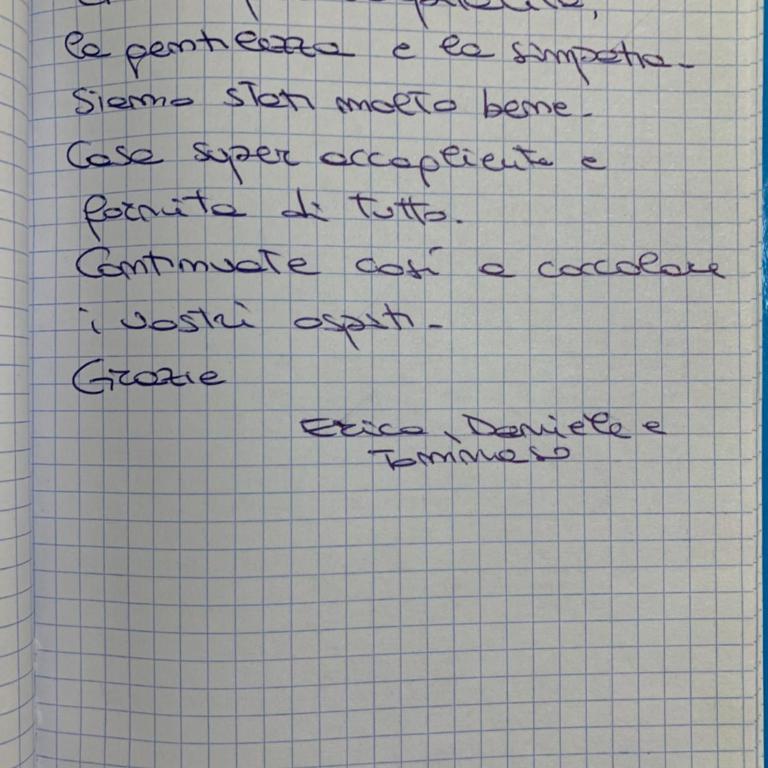 la gentilezza e la simpatia.
Siamo stati molto bene.
Casa super accogliente e
fornita di tutto.
Continuate così a coccolare
i vostri ospiti.
Grazie
Erica, Daniele e
Tommaso